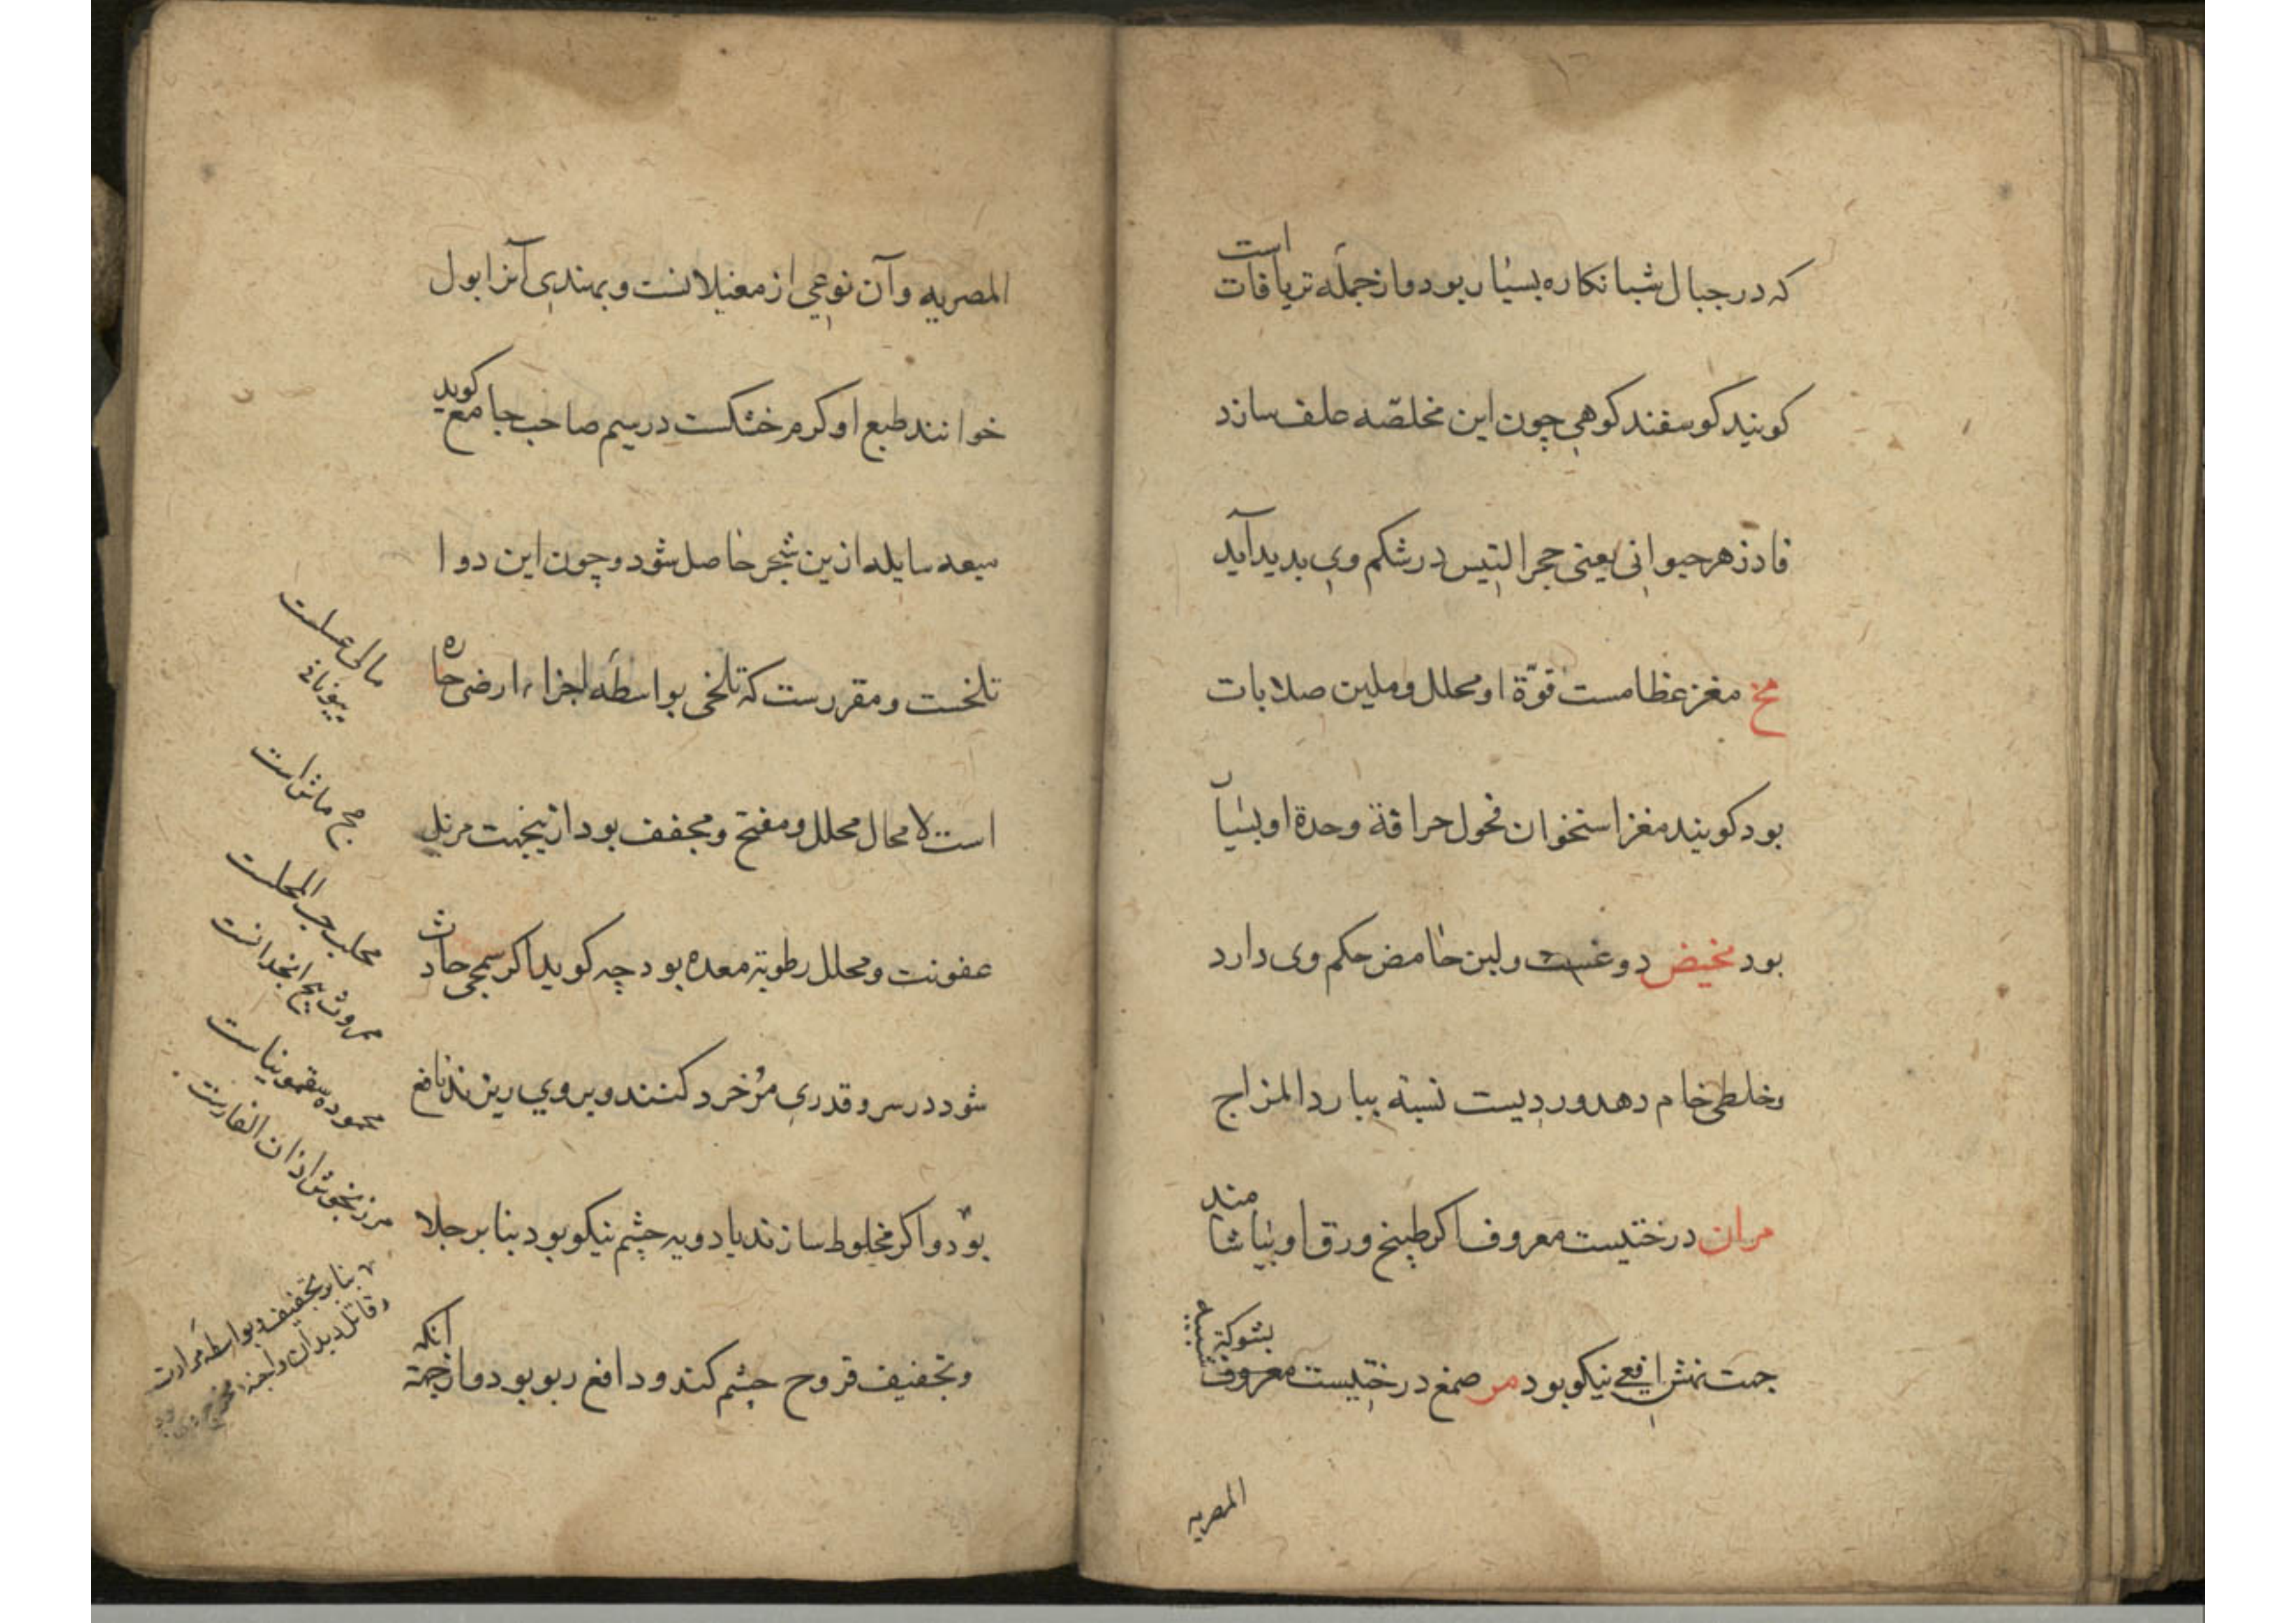 که در جبال شبانکاره بسیار بود و از جمله تریاقات است
کویند کوسفند کوهی چون این مخلصه علف سازد
فادزهر حیوانی یعنی حجر التیس در شکم وی بدید آید
مخ مغز عظامست قوّة او محلل و ملین صلابات
بود کویند مغز استخوان فحول حراقة وحدة او بسیار
بود مخیض دوغست و لبن حامض حکم وی دارد
وخلطی خام دهد وردیست نسبة ببارد المزاج
مران درختیست معروف اکر طبیخ ورق او بیاشامند
جهت نهش افعی نیکو بود مر صمغ درختیست معروف بشوکة
المصریه
المصریه وآن نوعی از مغیلانست و بهندی آنرا بول
خوانند طبع او کرم خشکست در سیم صاحب جامع کوید
میعه سایله ازین شجر حاصل شود و چون این دوا
تلخست و مقررست که تلخی بواسطه اجزاء ارضی حاره
است لا محال محلل و مفتح و مجفف بود ازینجهت مزیل
عفونت و محلل رطوبة معده بود چه کویند اکر سمجی حادث
شود در سر و قدری مُر خرد کنند و بر وی ریزند نافع
بود و اکر مخلوط سازند بادویه چشم نیکو بود بنا بر جلا
و تجفیف قروح چشم کند و دافع ربو بود و از جهة آنکه
مالی عسلست
بیونانی
مج ماش است
محلب حب المحلست
محروث بیخ انجدانست
محموده سقمونیاست
مرزنجوش اذان الفارست
بنا بر تجفیف و بواسطه مرارت
و قاتل دیدان و اجنه